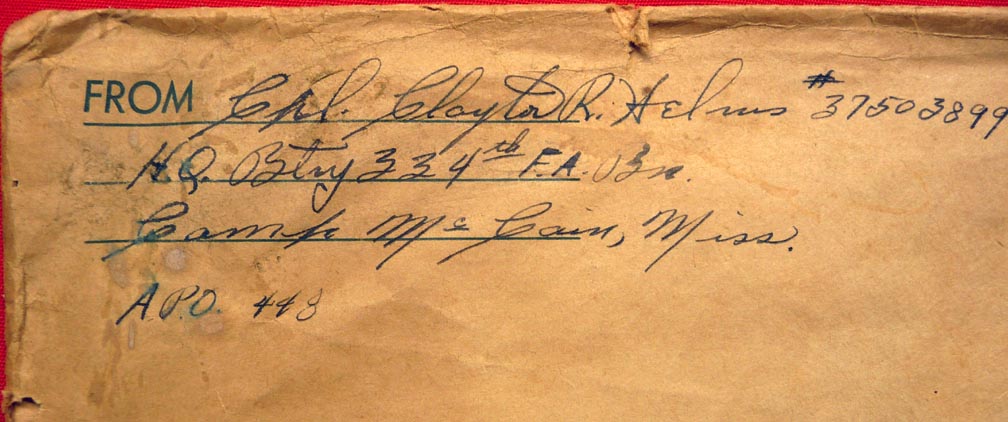 FROM Cpl. Clayton R. Helms #37503899
H.Q. Btry 334th F.A. Bn.
Camp Mc Cain, Miss.
A.P.O. 448